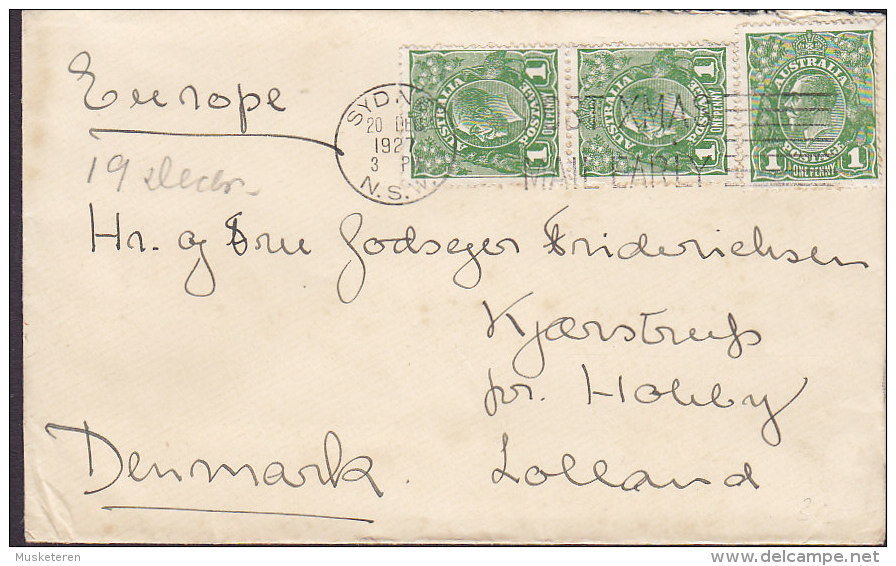 Europe
19 Decbr.
SYDNEY
20 DEC
1927
3 P
N.S.W.
XMAS
MAIL EARLY
AUSTRALIA
POSTAGE
1
ONE PENNY
1
AUSTRALIA
POSTAGE
1
ONE PENNY
1
AUSTRALIA
POSTAGE
1 1
ONE PENNY
Hr. og Frue Godsejer Friderichsen
Kjærstrup
pr. Holeby
Lolland
Denmark.
Musketeren
delcampe.net